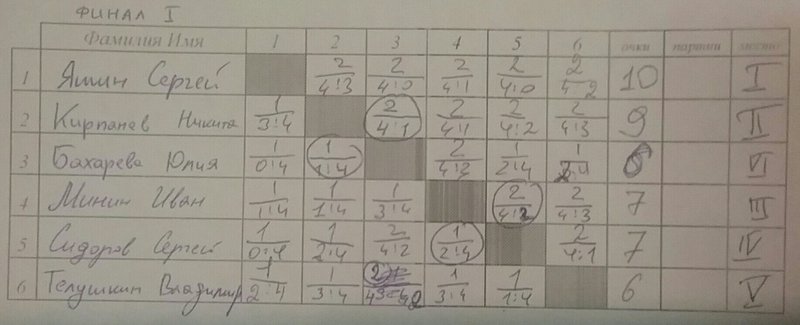 ФИНАЛ I
Фамилия Имя 1 2 3 4 5 6 очки партии место
1 Яшин Сергей 2 4:3 2 4:0 2 4:1 2 4:0 2 4:2 10 I
2 Кирпанев Никита 1 3:4 2 4:1 2 4:1 2 4:2 2 4:3 9 II
3 Бахарева Юлия 1 0:4 1 1:4 2 4:3 1 2:4 1 6 VI
4 Минин Иван 1 1:4 1 1:4 1 3:4 2 4:2 2 4:3 7 III
5 Сидоров Сергей 1 0:4 1 2:4 2 4:2 1 2:4 2 4:1 7 IV
6 Телушкин Владимир 1 2:4 1 3:4 2 1 3:4 1 1:4 6 V